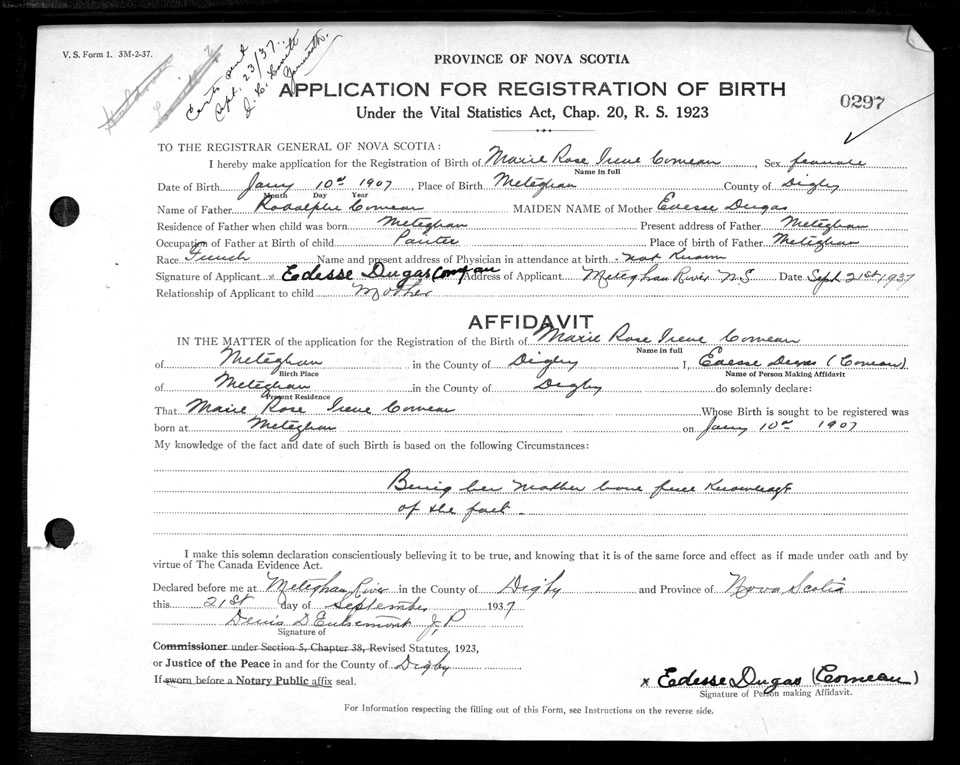 V. S. Form 1. 3M-2-37.
Certs sent
Sept. 23/37
Yarmouth.
PROVINCE OF NOVA SCOTIA
APPLICATION FOR REGISTRATION OF BIRTH
0297
Under the Vital Statistics Act, Chap. 20, R. S. 1923
TO THE REGISTRAR GENERAL OF NOVA SCOTIA:
I hereby make application for the Registration of Birth of Marie Rose Irene Comeau, Sex female
Name in full
Date of Birth Jany 10th 1907, Place of Birth Meteghan County of Digby
Month Day Year
Name of Father Rodolphe Comeau MAIDEN NAME of Mother Edesse Dugas
Residence of Father when child was born Meteghan Present address of Father Meteghan
Occupation of Father at Birth of child Painter Place of birth of Father Meteghan
Race French Name and present address of Physician in attendance at birth not Known
Signature of Applicant x Edesse Dugas Comeau Address of Applicant Meteghan River N.S Date Sept 21st 1937
Relationship of Applicant to child Mother
AFFIDAVIT
IN THE MATTER of the application for the Registration of the Birth of Marie Rose Irene Comeau
Name in full
of Meteghan in the County of Digby I, Edesse Dugas (Comeau)
Birth Place Name of Person Making Affidavit
of Meteghan in the County of Digby do solemnly declare:
Present Residence
That Marie Rose Irene Comeau Whose Birth is sought to be registered was
born at Meteghan on Jany 10th 1907
My knowledge of the fact and date of such Birth is based on the following Circumstances:
Being her Mother have full Knowledge
of the fact.
I make this solemn declaration conscientiously believing it to be true, and knowing that it is of the same force and effect as if made under oath and by
virtue of The Canada Evidence Act.
Declared before me at Meteghan River in the County of Digby and Province of Nova Scotia
this 21st day of September 1937
Denis D J.P
Signature of
Commissioner under Section 5, Chapter 38, Revised Statutes, 1923,
or Justice of the Peace in and for the County of Digby
If sworn before a Notary Public affix seal.
x Edesse Dugas (Comeau)
Signature of Person making Affidavit.
For Information respecting the filling out of this Form, see Instructions on the reverse side.